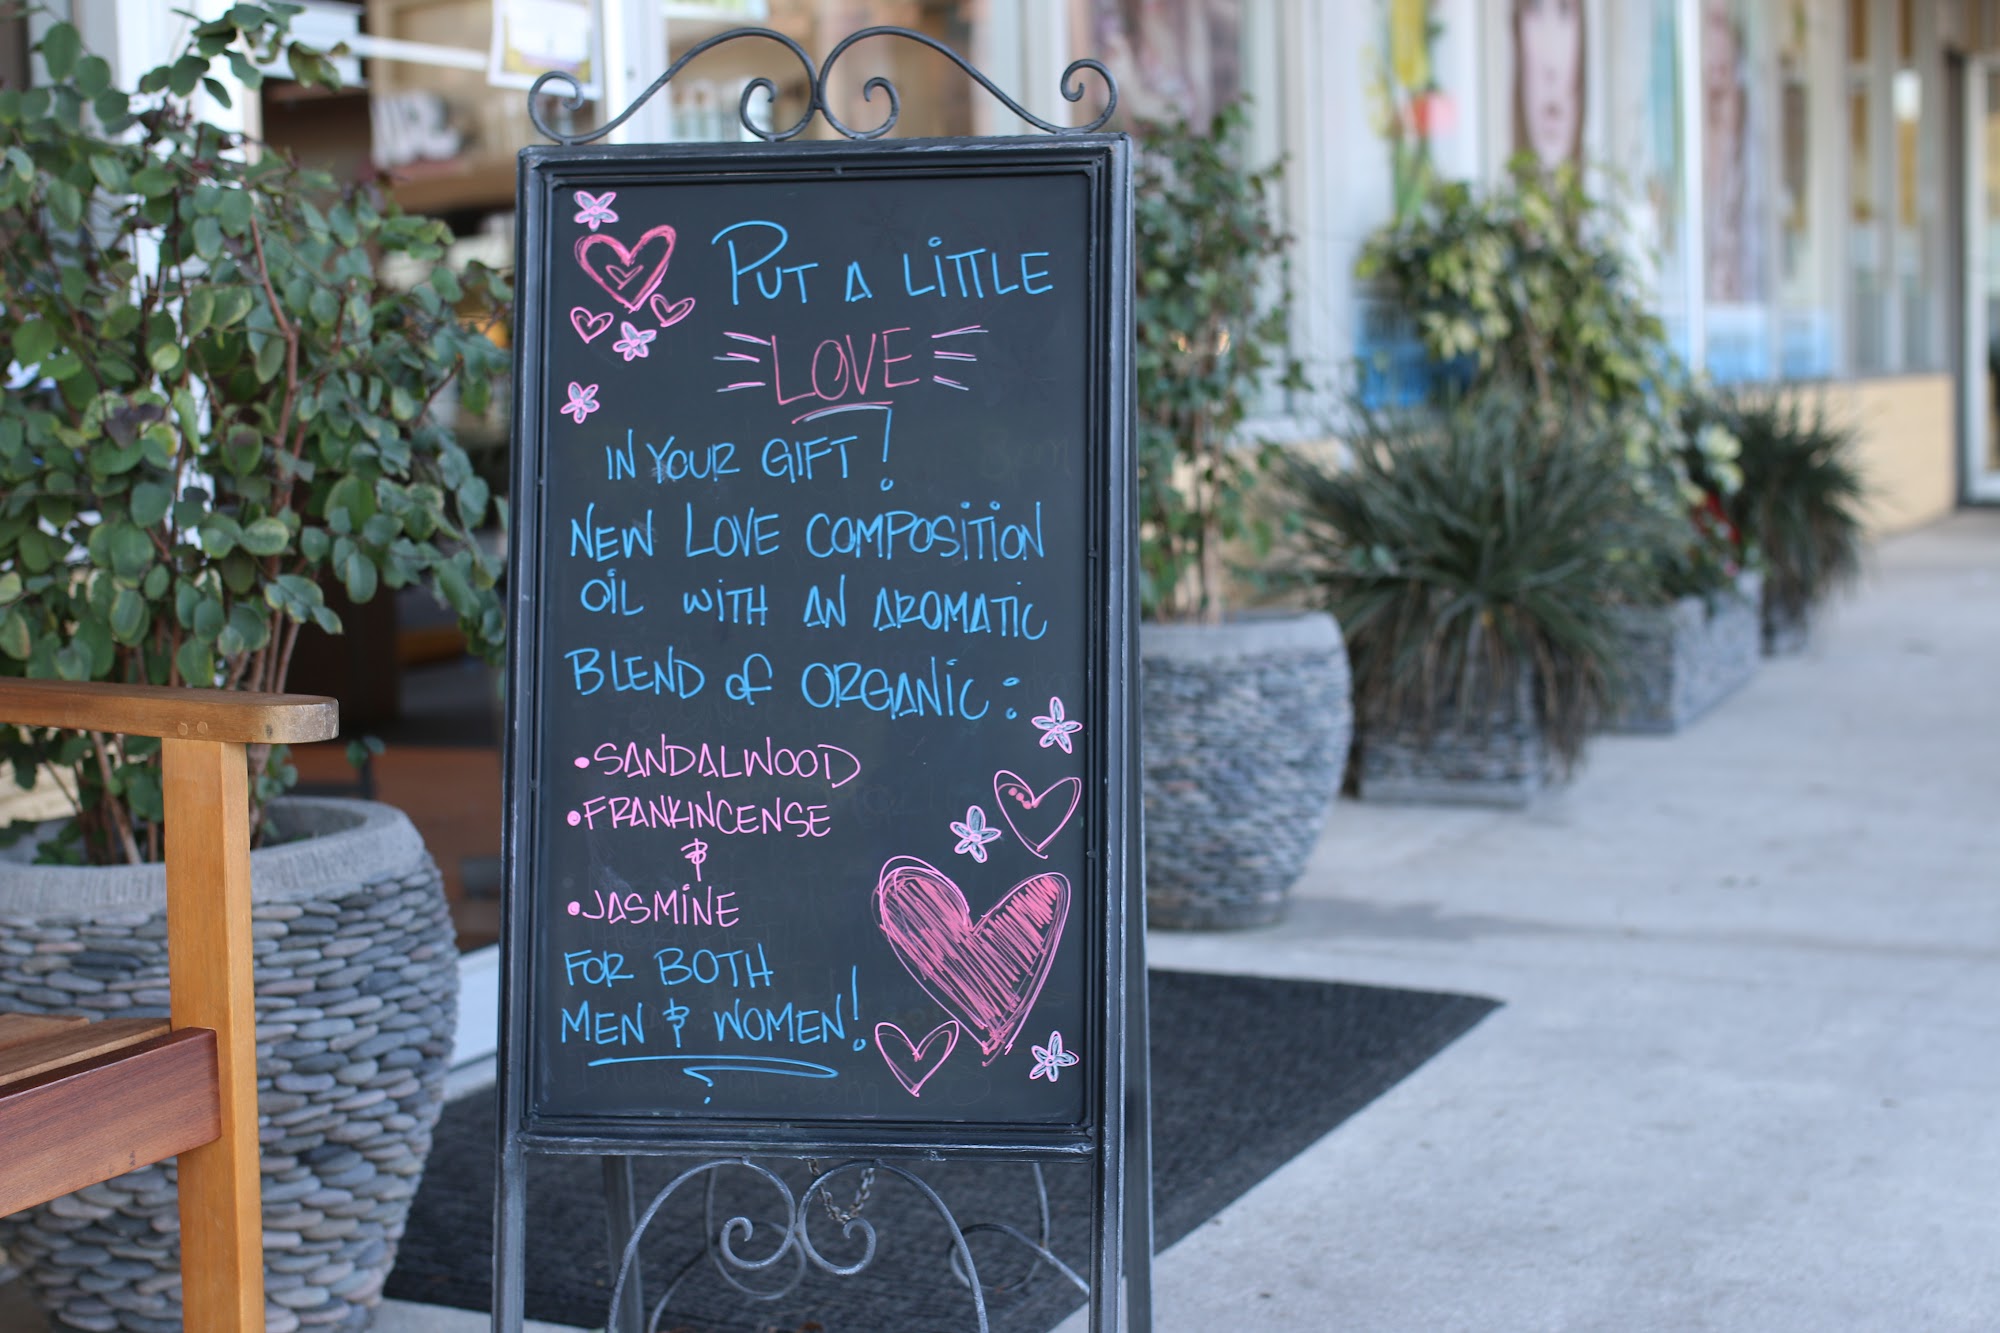 PUT A LITTLE
LOVE
IN YOUR GIFT!
NEW LOVE COMPOSITION
OIL WITH AN AROMATIC
BLEND of ORGANIC:
•SANDALWOOD
•FRANKINCENSE
&
•JASMINE
FOR BOTH
MEN & WOMEN!